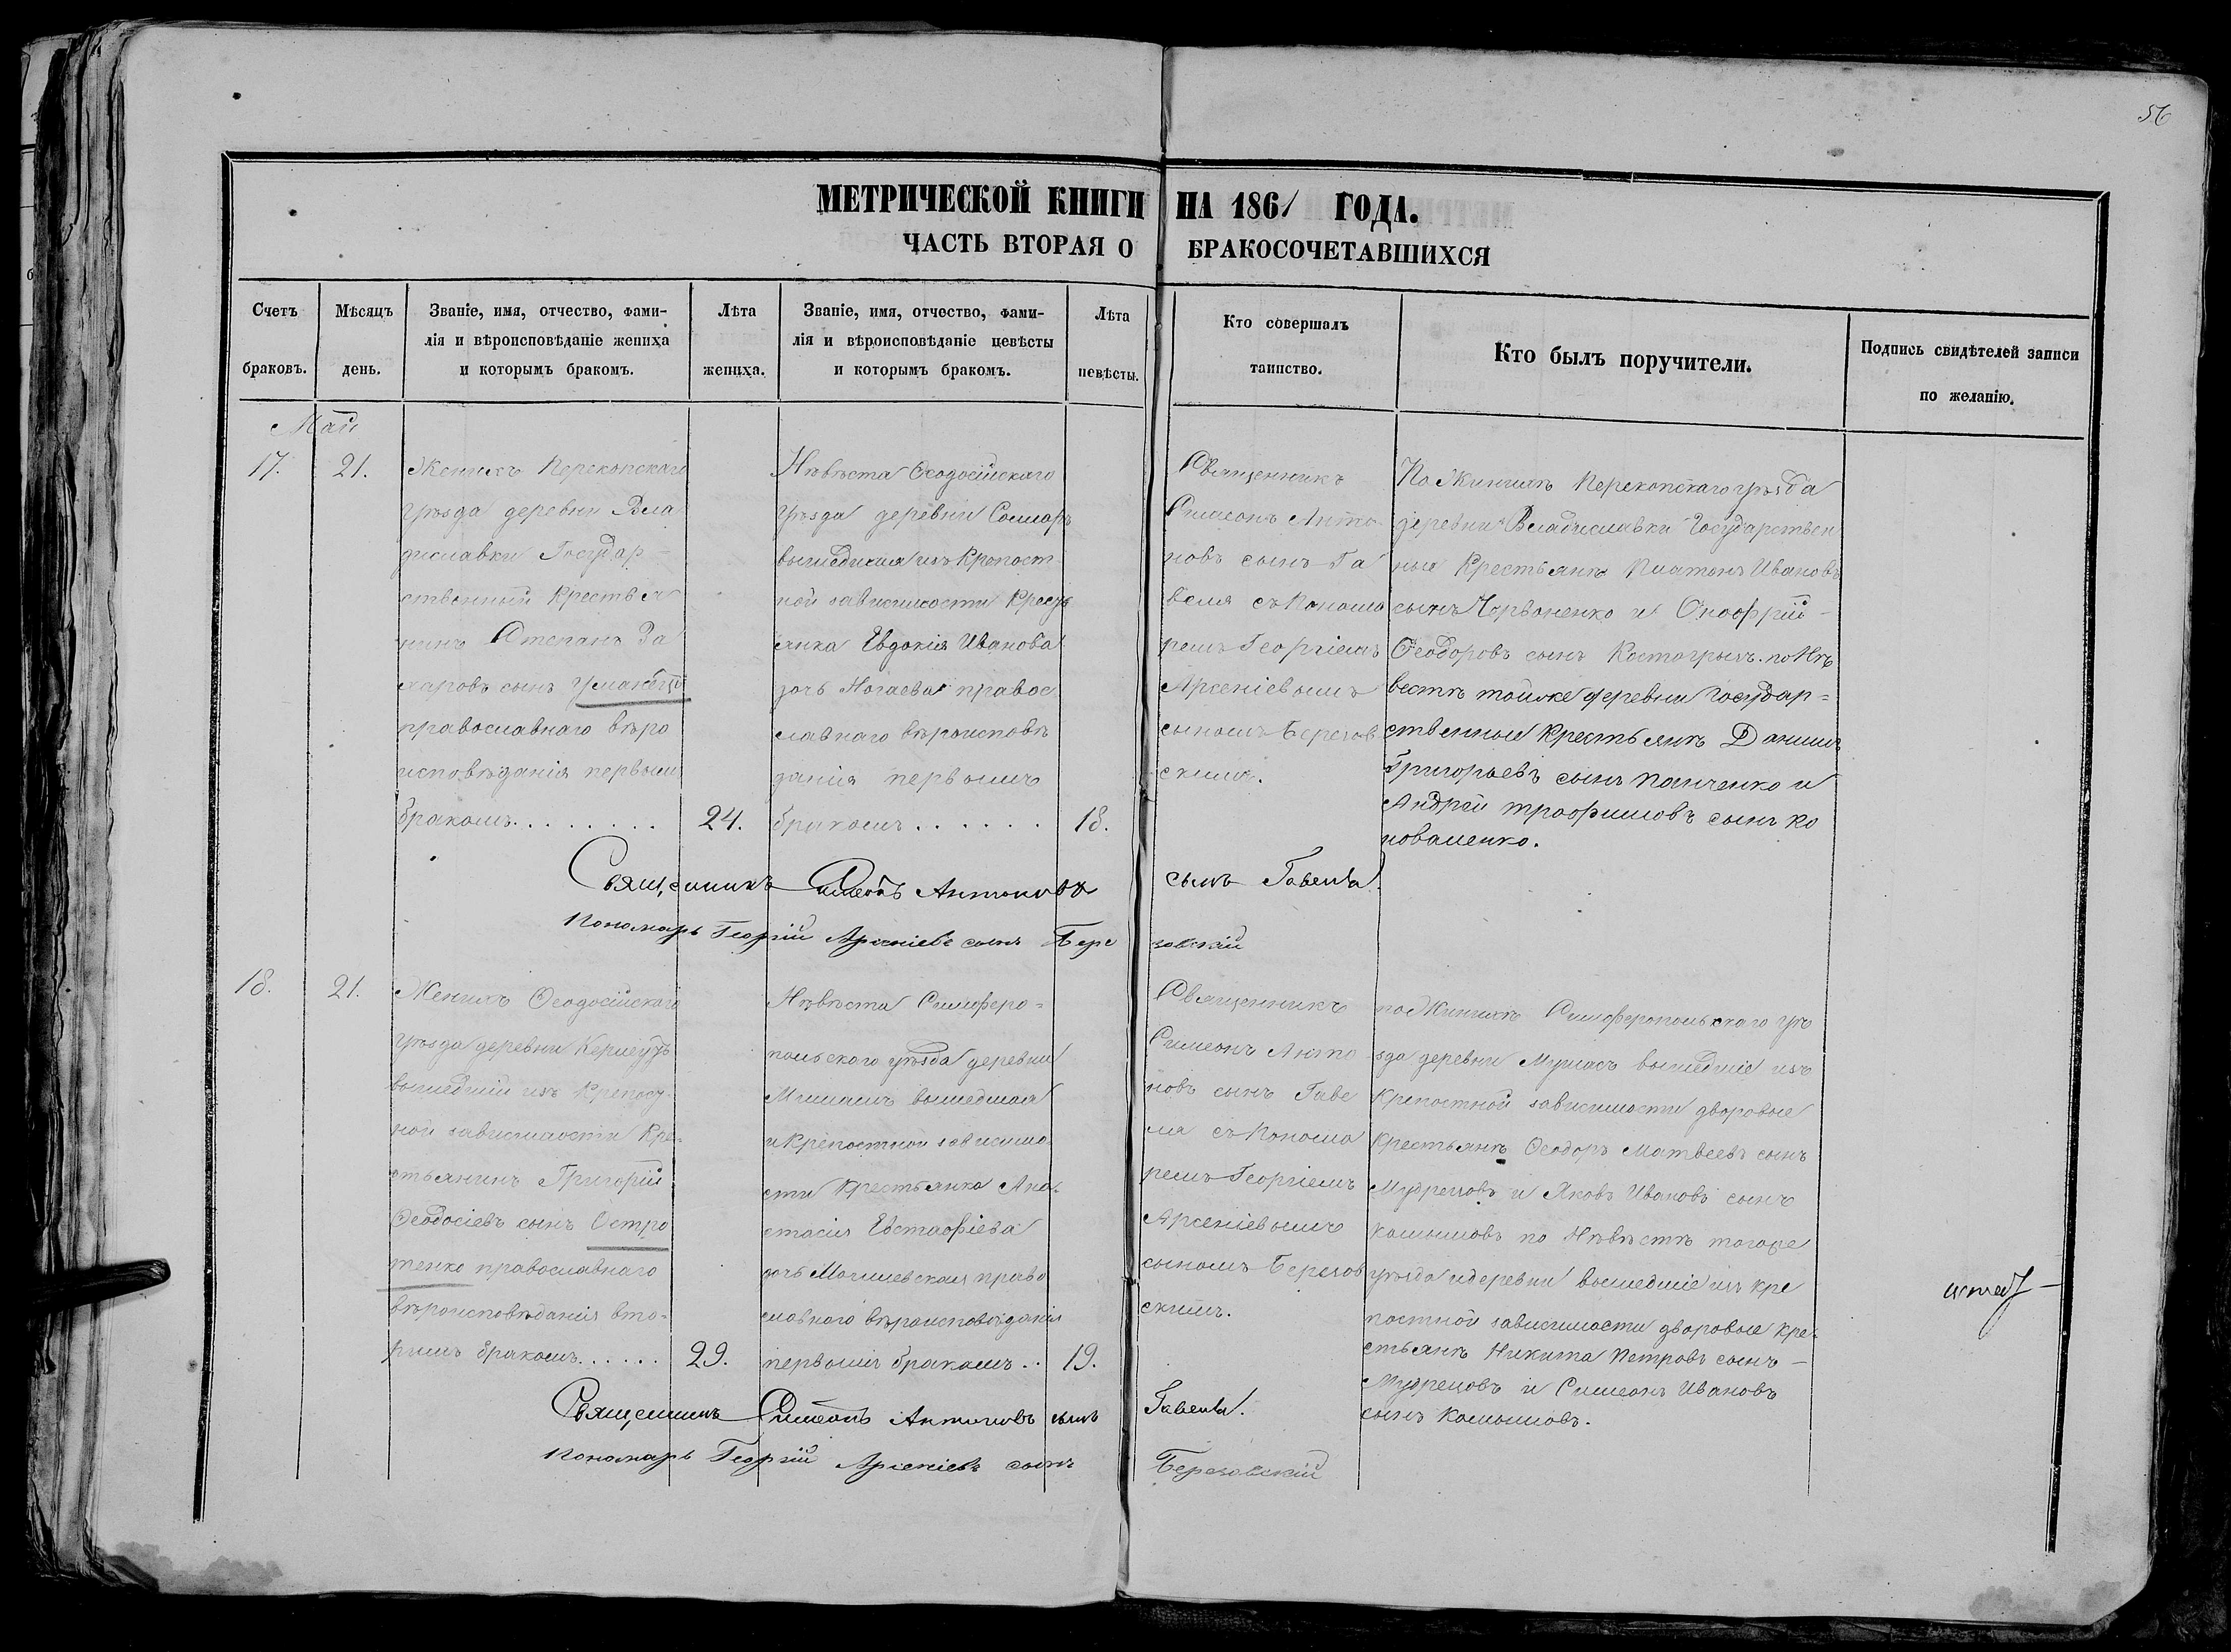 56
МЕТРИЧЕСКОЙ КНИГИ НА 1861 ГОДА.
ЧАСТЬ ВТОРАЯ О БРАКОСОЧЕТАВШИХСЯ
Счетъ
браковъ.
Мѣсяцъ
день.
Званіе, имя, отчество, фами-
лія и вѣроисповѣданіе жениха
и которымъ бракомъ.
Лѣта
жениха.
Званіе, имя, отчество, фами-
лія и вѣроисповѣданіе цевѣсты
и которымъ бракомъ.
Лѣта
певѣсты.
Кто совершалъ
таинство.
Кто былъ поручители.
Подпись свидѣтелей записи
по желанію.
Май
17.
21.
Женихъ Перекопскаго
уѣзда деревни Вла
диславки Государ-
ственный Крестья
нинъ Стеѳанъ За
харовъ сынъ Уманецъ
православнаго вѣро
исповѣданія первымъ
бракомъ........
24.
Нѣвѣста Ѳеодосійскаго
уѣзда деревни
вышедшая изъ Крѣпост
ной зависимости Крест
янка Евдокія Иванова
дочь Ногаева правос
лавнаго вѣроисповѣ
данія первымъ
бракомъ......
18.
Священникъ
Симеонъ Анто-
новъ сынъ Га
веля съ Понома
ремъ Георгіемъ
Арсеніевымъ
сыномъ Березов
скимъ.
По Жинихѣ Перекопскаго уѣзда
деревни Владиславки Государствен
ные Крестьянѣ Платонъ Ивановъ
сынъ Червоненко и Оноофрій-
Ѳеодоровъ сынъ Костогрызъ. по Нѣ
вестѣ тойже деревни Государ=
ственные Крестьянѣ Даниилъ
Григорьевъ сынъ Панченко и
Андрей Трофимовъ сынъ Ко
новаленко.
Священникъ Симеонъ Антоновъ сынъ Гавеля.
Пономарь Георгій Арсеніевъ сынъ Бере зовскій
18.
21.
Женихъ Ѳеодосійскаго
уѣзда деревни
вышедшій изъ Крепост
ной зависимости Кре-
стьянинъ Григорій
Ѳеодосіевъ сынъ Остро
тенко православнаго
вѣроисповѣданія вто-
рымъ бракомъ......
29.
Нѣвѣста Симферо=
польскаго уѣзда деревни
вышедшая
и Крепостной зависимо-
сти Крестьянка Ана-
стасія Евстафіева
дочь Могилевская право
славнаго вѣроисповѣданія
первымъ бракомъ..
19.
Священникъ
Симеонъ Анто-
новъ сынъ Гаве
ля съ Понома
ремъ Георгіемъ
Арсеніевымъ
сыномъ Березов
скимъ.
по Жинихѣ Симферопольскаго уѣ
зда деревни вышедшіе изъ
Крепостной зависимости дворовые
Крестьянѣ Ѳеодоръ Матвеевъ сынъ
Мудрецовъ и Яковъ Ивановъ сынъ
Камышовъ по Нѣвѣстѣ тогоже
уѣзда и деревни вышедшіе изъ Кре
постной зависимости дворовые Кре-
стьянѣ Никита Петровъ сынъ-
Мудрецовъ и Симеонъ Ивановъ
сынъ Камышовъ.
Священникъ Симеонъ Антоновъ сынъ Гавеля.
Пономарь Георгій Арсеніевъ сынъ Березовскій